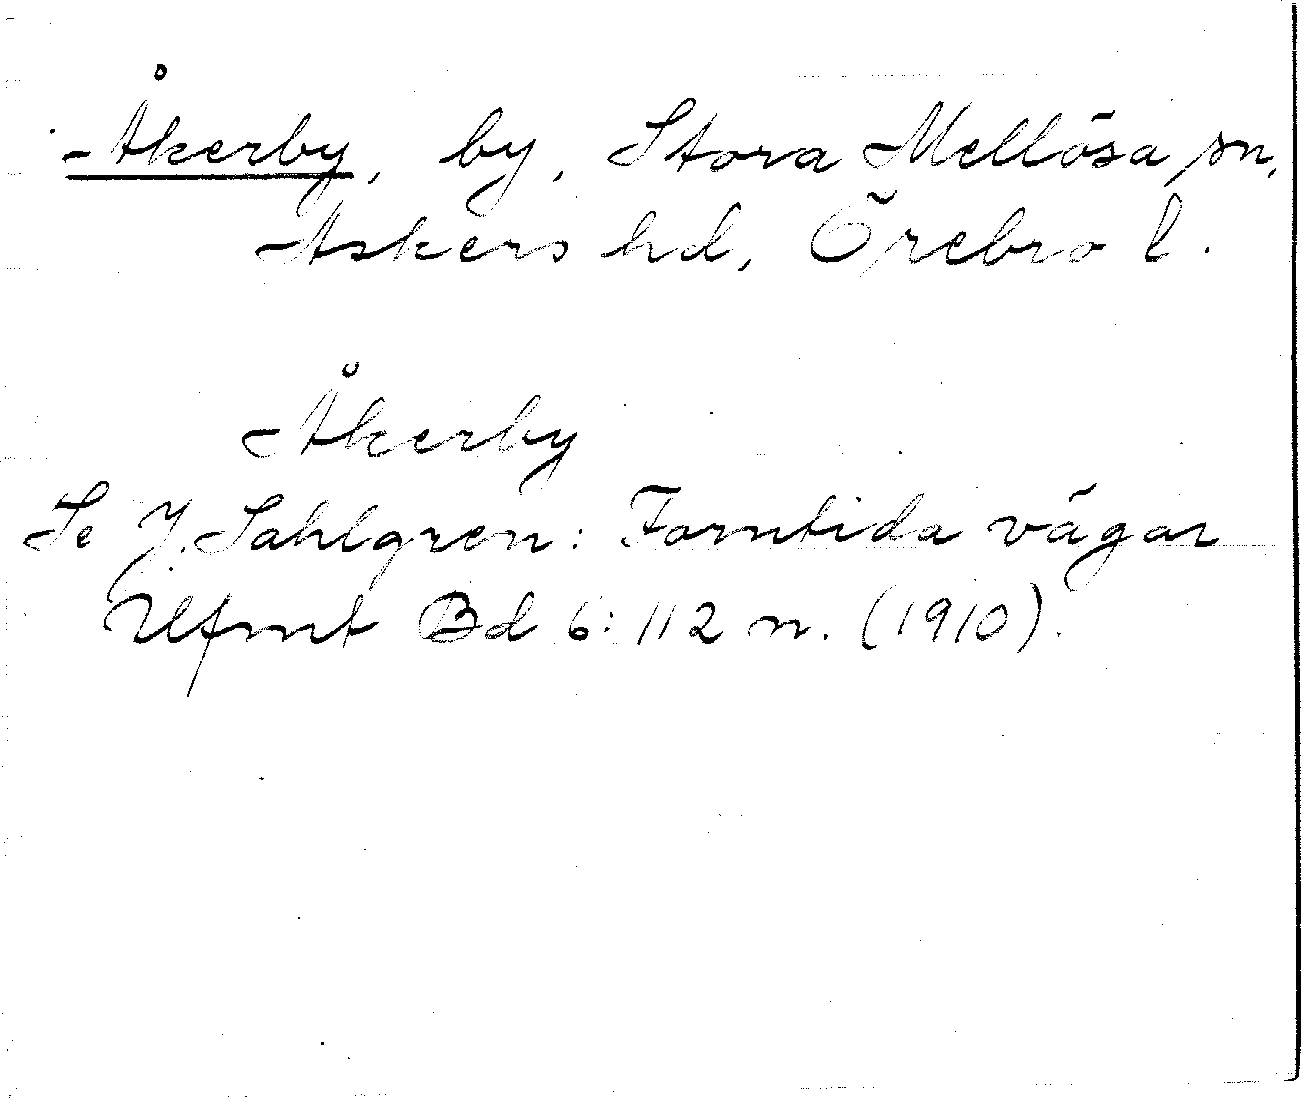 Åkerby, by, Stora Mellösa sn,
Askers hd, Örebro l.
Åkerby
Se J. Sahlgren: Forntida vägar
Ufmt Bd 6: 112 n. (1910).